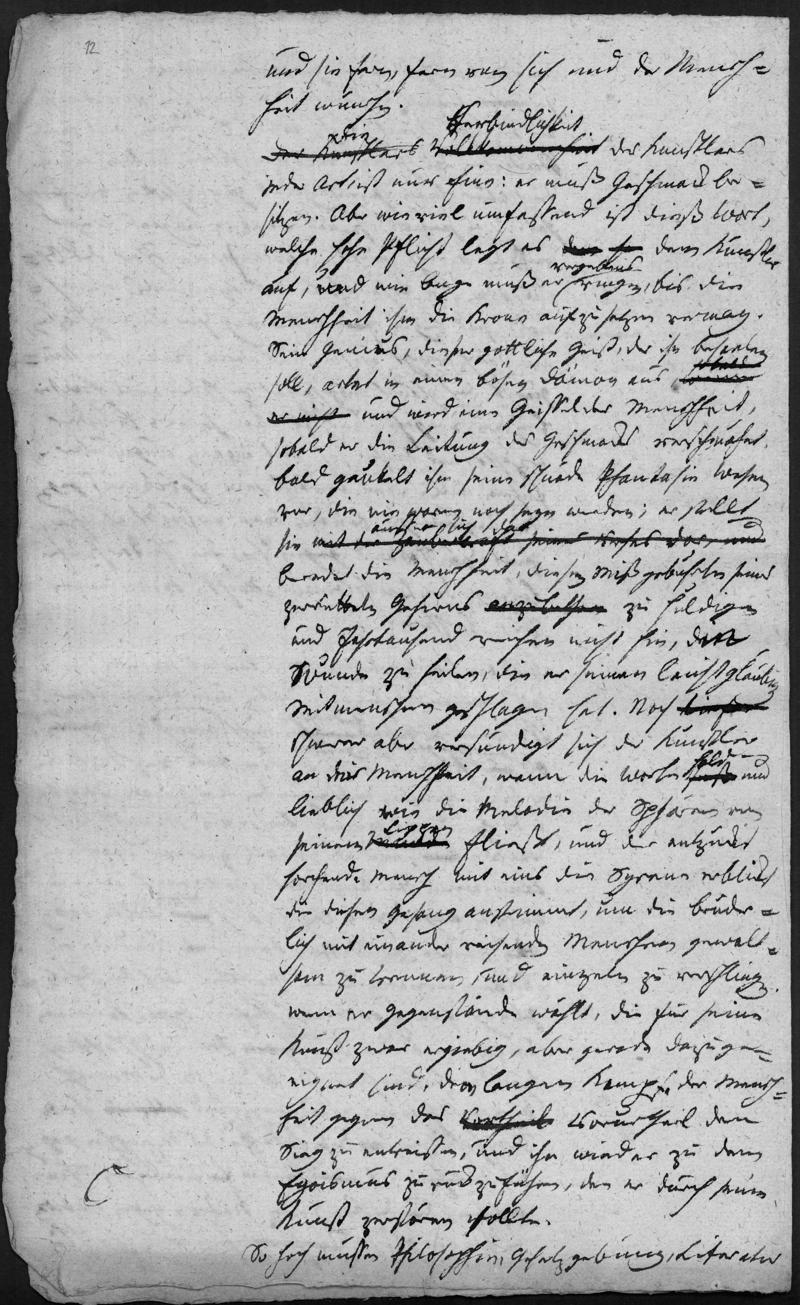 12
und sie fern, fern von sich und der Mensch=
heit wünschen.
Die Verbindlichkeit
Des Künstlers Vollkommenheit des Künstlers
jeder Art ist nur eine: er muß Geschmack be=
sitzen. Aber wie viel umfassend ist dieß Wort,
welche hohe Pflicht legt es dem Künstler
auf, und wie lange muß er vergebens ringen, bis die
Menschheit ihm die Krone aufzusetzen vermag.
Sein Genius, dieser göttliche Geist, der ihn beseelen
soll, artet in einen bösen Dämon aus,
er nicht und wird eine Geissel der Menschheit,
sobald er die Leitung des Geschmacks verschmähet.
bald gaukelt ihm seine schnöde Phantasie Wesen
vor, die nie waren noch seyn werden; er stellt
sie mit der Zauberkraft seines dar, und
beredet die Menschheit, diesen Mißgeburten seines
zerrütteten Gehirns anzubethen zu huldigen
und Jahrtausend reichen nicht hin, den
Wunden zu heilen, die er seinen leichtgläubigen
Mitmenschen geschlagen hat. Noch tiefer
schwerer aber versündigt sich der Künstler
an der Menschheit, wenn die Worte süß und
lieblich wie die Melodie der Sphären von
seinem Munde Lippen fließt, und der entzückt
horchende Mensch mit eins die Syrene erblickt
die diesen Gesang anstimmt, um die brüder=
lich mit einander reisenden Menschen gewalt=
sam zu trennen, und einzeln zu verschlingen.
wenn er Gegenstände wählt, die für seine
Kunst zwar ergiebig, aber gerade dazu ge=
eignet sind, dem langen Kampfe der Mensch=
heit gegen das Vortheil Vorurtheil den
Sieg zu entreissen, und ihn wieder zu dem
Egoismus zurückzuführen, den er durch seine
Kunst zerstören sollte.
So hoch müssen Philosophie, Gesetzgebung, Literatur